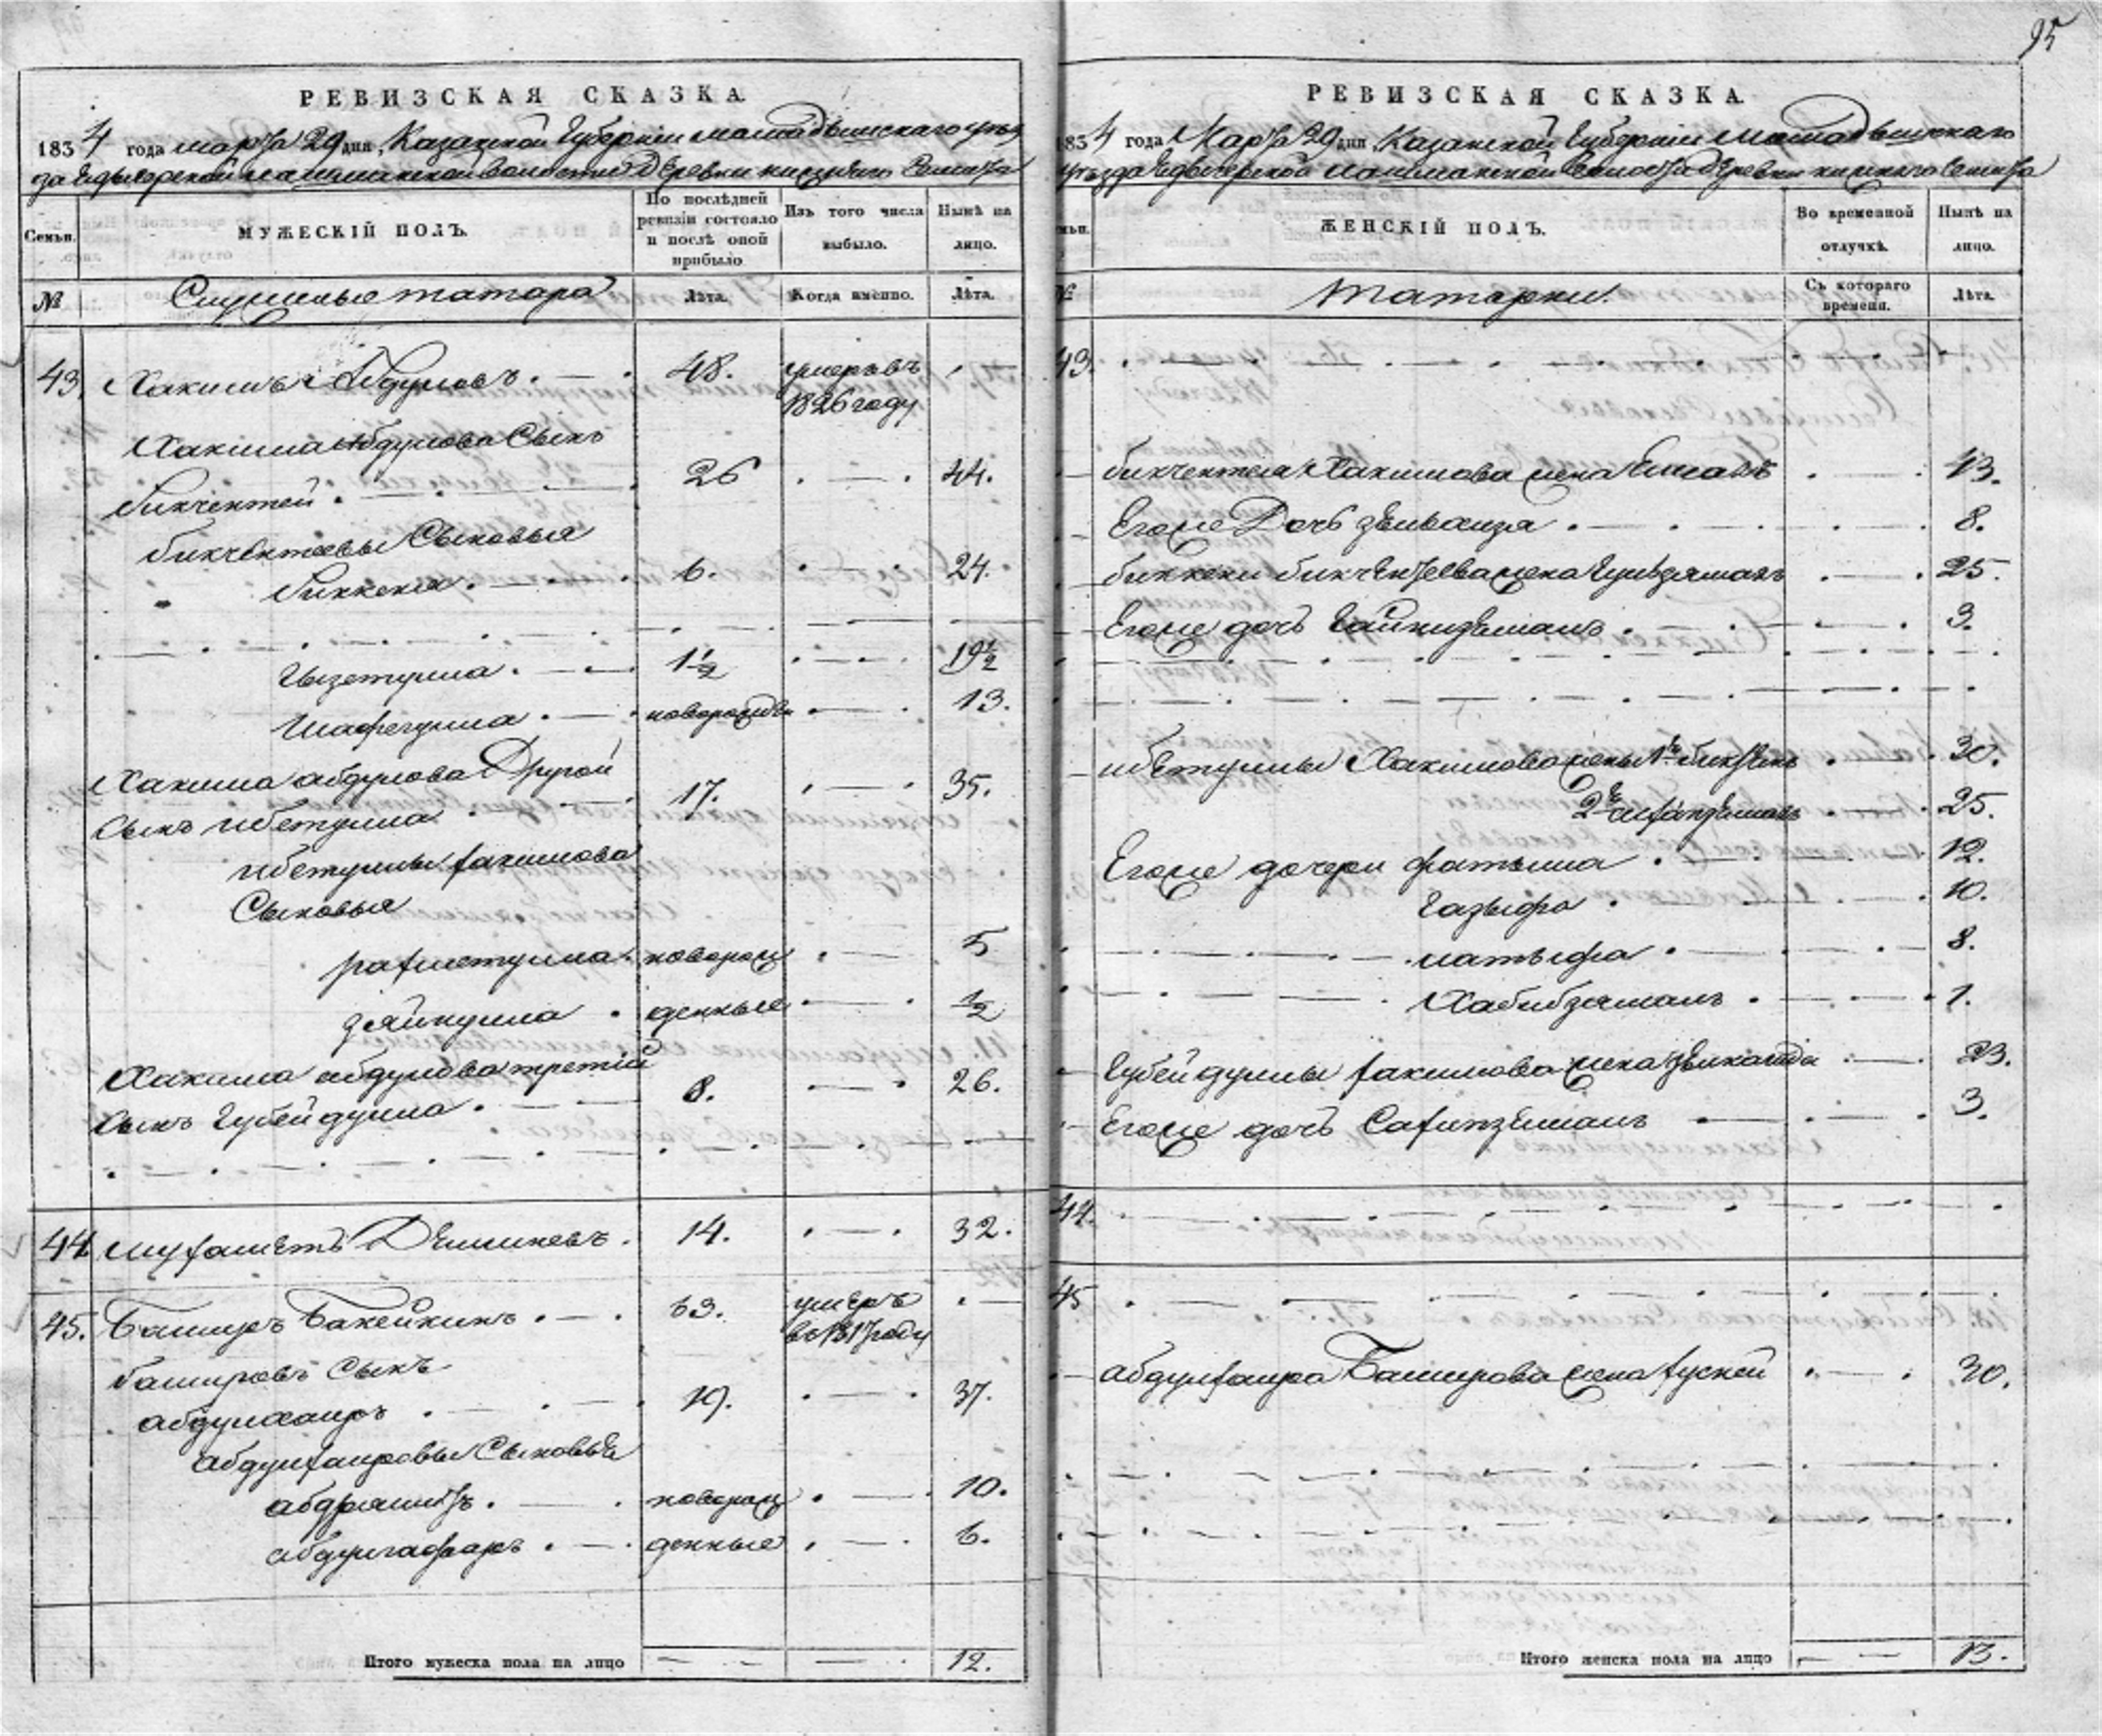 95
РЕВИЗСКАЯ СКАЗКА.
1834 года марта 29 дня, Казанской Губернiи мамадышскаго уѣз
да Волости Деревни
Семьи.
МУЖЕСКIЙ ПОЛЪ.
По послѣдней ревизiи состояло и послѣ оной прибыло
Изъ того числа выбыло.
Нынѣ на лицо.
№
Служилые татара
Лѣта.
Когда именно.
Лѣта.
43 Хакимъ Абдуловъ. 48. умеръ въ 1826 году
Хакима Абдулова Сынъ
бикчентей. 26 44.
бикчентеевы Сыновья
биккеня. 6. 24.
Гызетулла. 1 1/2 19 1/2
Шафегулла. новорожден 13.
Хакима абдулова Другой
Сынъ ибетулла 17. 35.
ибетуллы хакимова
Сыновья
рахметулла. новорож 5
зяйнулла денные 1/2
Хакима абдулова третiй
Сынъ Губейдулла. 8. 26.
44 мухаметъ 14. 32.
45. Баширъ Бакейкинъ. 63. умеръ въ 1817 году
башировъ Сынъ
абдулхаиръ 19. 37.
абдулхаировы Сыновья
абдряшитъ. новорож 10.
абдулгафаръ. денные 6.
Итого мужеска пола на лицо 12.
РЕВИЗСКАЯ СКАЗКА.
1834 года Марта 29 дня, Казанской Губернiи Мамадышскаго
уѣзда Волости Деревни
Семьи.
ЖЕНСКIЙ ПОЛЪ.
Во временной отлучкѣ.
Нынѣ на лицо.
№
Татарки.
Съ котораго времени.
Лѣта.
43.
бикчентея Хакимова жена 43.
Егоже Дочь 8.
биккени бикчентеева жена 25.
Егоже дочь 3.
ибетуллы Хакимова жены 1я 30.
2я 25.
Егоже дочери фатыма. 12.
Газыфа. 10.
латыфа. 8.
Хабибзямалъ. 1.
Губейдуллы хакимова жена 23.
Егоже дочь 3.
44.
45
абдулхаира Баширова жена 30.
Итого женска пола на лицо 13.